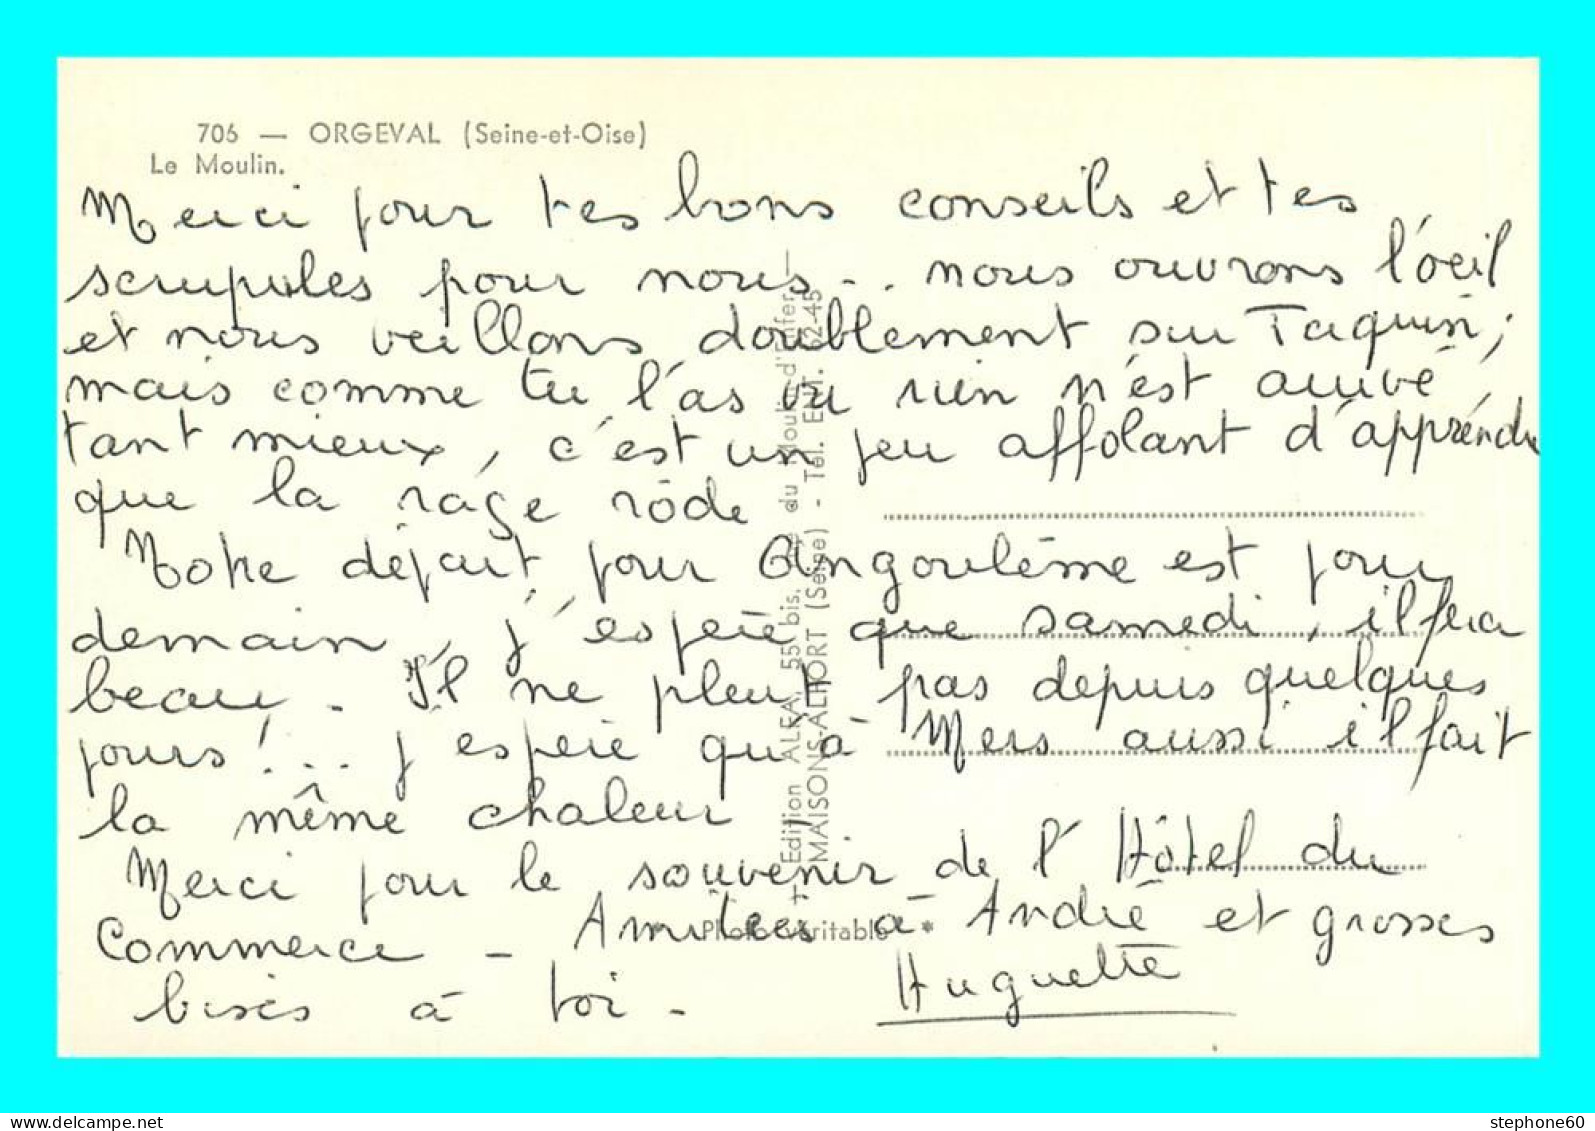 706 — ORGEVAL (Seine-et-Oise)
Le Moulin.
Merci pour tes bons conseils et tes
scrupules pour nous... nous ouvrons l'oeil
et nous veillons doublement sur Taquin;
mais comme tu l'as vu rien n'est arrivé,
tant mieux, c'est un peu affolant d'apprendre
que la rage rôde
Notre départ pour Angoulême est pour
demain, j'espère que samedi, il fera
beau. Il ne pleut pas depuis quelques
jours!... j'espère qu'à Mers aussi il fait
la même chaleur,
Merci pour le souvenir de l'Hôtel du
Commerce - Amitiés à André et grosses
bises à toi.
Huguette
Edition ALFA, 55 bis, du Moulin d'Enfer —
MAISONS-ALFORT (Seine) - Tél. ENT. 62-45
* Photo Véritable *
delcampe.net
stephone60